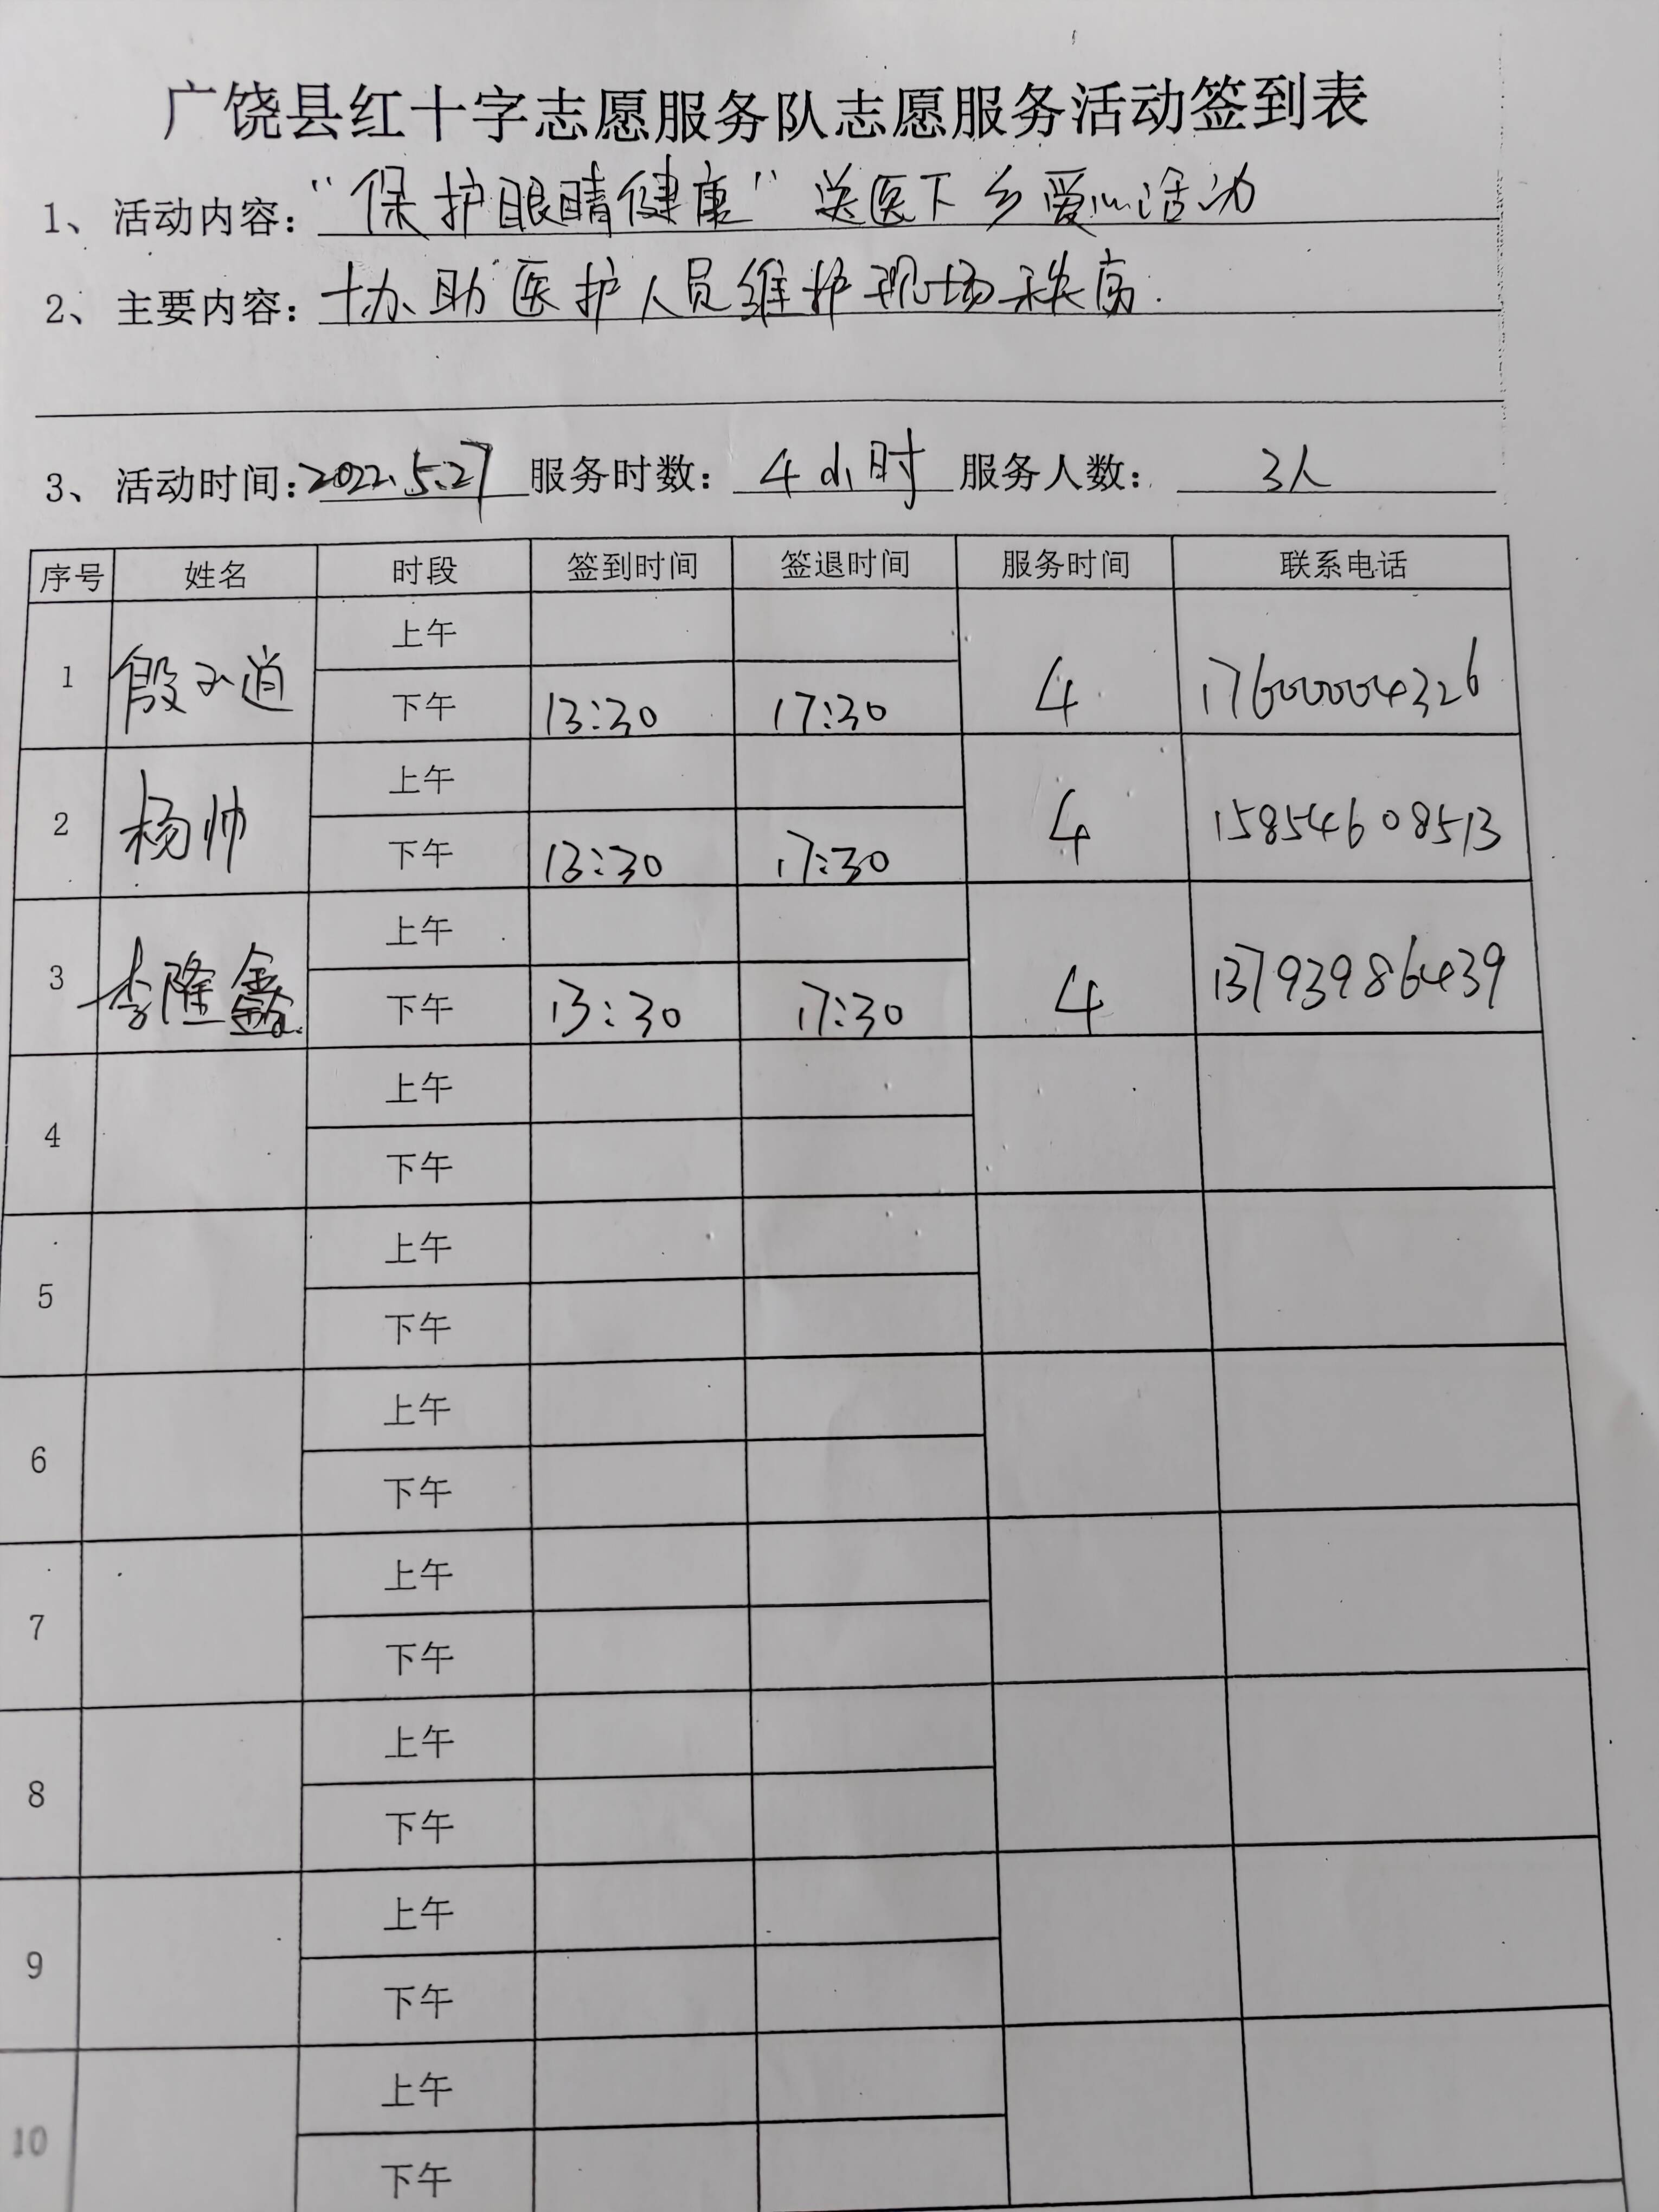 广饶县红十字志愿服务队志愿服务活动签到表
1、活动内容：“保护眼睛健康”送医下乡爱心活动
2、主要内容：协助医护人员维护现场秩序.
3、活动时间：2022.5.27 服务时数：4小时 服务人数：3人
序号 姓名 时段 签到时间 签退时间 服务时间 联系电话
上午
1 殷 道 4 17600004326
下午 13:30 17:30
上午
2 杨帅 4 15854608513
下午 13:30 17:30
上午
3 李隆鑫 4 13793986439
下午 13:30 17:30
上午
4
下午
上午
5
下午
上午
6
下午
上午
7
下午
上午
8
下午
上午
9
下午
上午
10
下午